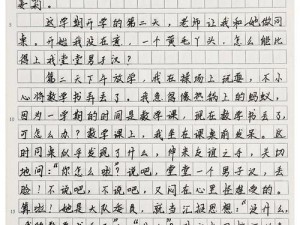 这学期开学的第二天，老师让我和她做同
桌。开始我没在意，一个黄毛丫头，怎么能比
得上我堂堂男子汉？
第二天下午放学，我在操场上玩耍，不小
心将数学书弄丢了。我急得像热锅上的蚂蚁，
因为一学期的时间是数学，现在数学书丢了，
可怎么办？数学课上，我手在课桌前
时同桌似乎发现了什么，伸来友谊之手，关切
地问：“你怎么啦？”“说吧，堂堂一个男子汉，丢
脸！不说吧，不说吧，又闷在心里
算啦！她是大队委员，就当汇报思想：“没什么，